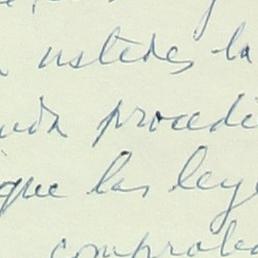 ustedes la
procedi
que las leye
comproba